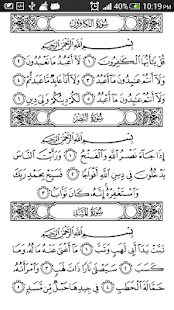 10:19 PM
سُورَةُ الكَافِرُونَ
بِسْمِ اللَّهِ الرَّحْمَٰنِ الرَّحِيمِ
قُلْ يَٰٓأَيُّهَا ٱلْكَٰفِرُونَ ١ لَآ أَعْبُدُ مَا تَعْبُدُونَ ٢
وَلَآ أَنتُمْ عَٰبِدُونَ مَآ أَعْبُدُ ٣ وَلَآ أَنَا۠ عَابِدٌ مَّا عَبَدتُّمْ ٤
وَلَآ أَنتُمْ عَٰبِدُونَ مَآ أَعْبُدُ ٥ لَكُمْ دِينُكُمْ وَلِىَ دِينِ ٦
سُورَةُ النَّصْرِ
بِسْمِ اللَّهِ الرَّحْمَٰنِ الرَّحِيمِ
إِذَا جَآءَ نَصْرُ ٱللَّهِ وَٱلْفَتْحُ ١ وَرَأَيْتَ ٱلنَّاسَ
يَدْخُلُونَ فِى دِينِ ٱللَّهِ أَفْوَاجًا ٢ فَسَبِّحْ بِحَمْدِ رَبِّكَ
وَٱسْتَغْفِرْهُ إِنَّهُۥ كَانَ تَوَّابًۢا ٣
سُورَةُ المَسَدِ
بِسْمِ اللَّهِ الرَّحْمَٰنِ الرَّحِيمِ
تَبَّتْ يَدَآ أَبِى لَهَبٍ وَتَبَّ ١ مَآ أَغْنَىٰ عَنْهُ مَالُهُۥ وَمَا
كَسَبَ ٢ سَيَصْلَىٰ نَارًا ذَاتَ لَهَبٍ ٣ وَٱمْرَأَتُهُۥ
حَمَّالَةَ ٱلْحَطَبِ ٤ فِى جِيدِهَا حَبْلٌ مِّن مَّسَدٍۭ ٥